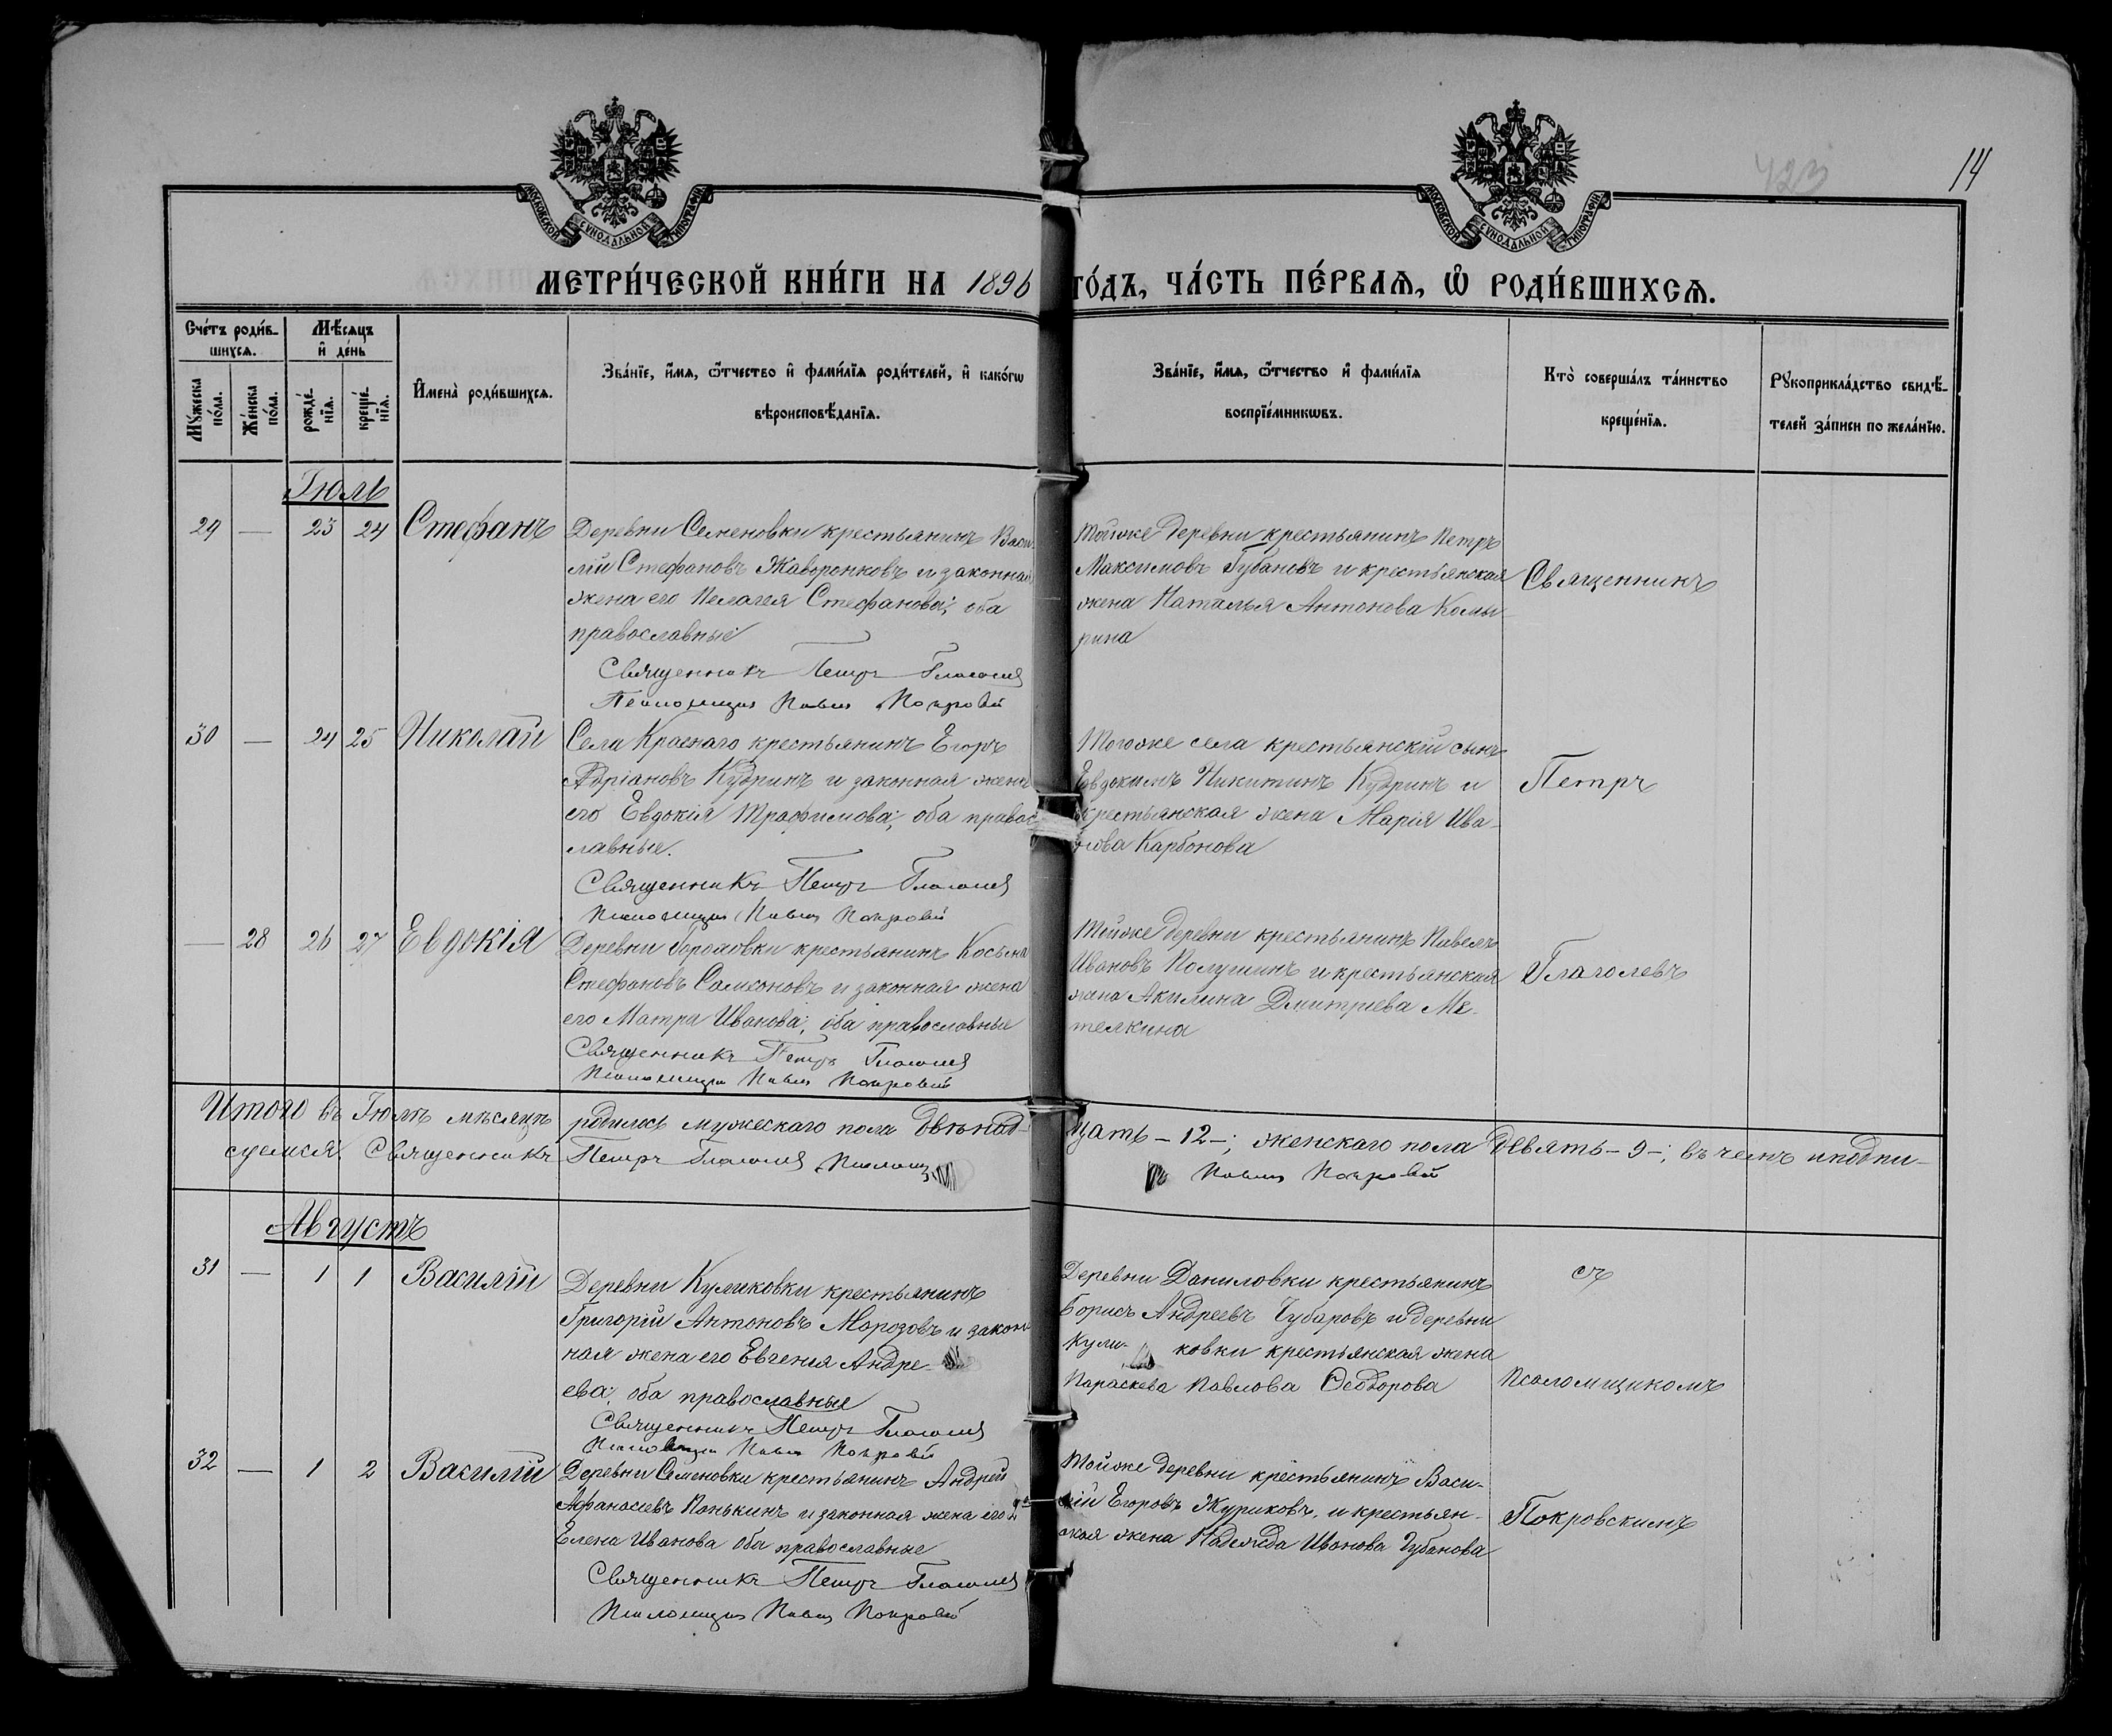 423
14
МОСКОВСКОЙ СѴНОДАЛЬНОЙ ТИПОГРАФІИ
МОСКОВСКОЙ СѴНОДАЛЬНОЙ ТИПОГРАФІИ
МЕТРИ́ЧЕСКОЙ КНИ́ГИ НА 1896 ГО́ДЪ, ЧА́СТЬ ПЕ́РВАѦ, Ѡ҆ РОДИ́ВШИХСѦ.
Счéтъ роди́в-
шихсѧ.
Мѣ́сѧцъ
и҆ де́нь
Мꙋ́жеска по́ла.
Же́нска по́ла.
рожде́-нїѧ.
креще́-нїѧ.
И҆мена̀ роди́вшихсѧ.
Зва́нїе, и҆́мѧ, ѻ҆́тчество и҆ фами́лїѧ роди́телей, и҆ како́гѡ
вѣроисповѣ́данїѧ.
Зва́нїе, и҆́мѧ, ѻ҆́тчество и҆ фами́лїѧ
воспрїе́мникѡвъ.
Кто̀ соверша́лъ та́инство
креще́нїѧ.
Рꙋкоприкла́дство свидѣ́-
телей за́писи по жела́нїю.
Іюль
29 — 23 24 Стефанъ
Деревни Семеновки крестьянинъ Васи-
лій Стефановъ Жаворонковъ и законная
жена его Пелагея Стефанова; оба
православные
Священникъ Петръ Глаголев
Псаломщик Павел Покровский
Тойже деревни крестьянинъ Петръ
Максимовъ Губановъ и крестьянская
жена Наталья Антонова Комы-
рина
Священникъ
30 — 24 25 Николай
Села Краснаго крестьянинъ Егоръ
Адріановъ Кудринъ и законная жена
его Евдокія Трафимова; оба правос-
лавные.
Священникъ Петръ Глаголев
Псаломщик Павел Покровский
Тогоже села крестьянскій сынъ
Евдокимъ Никитинъ Кудринъ и
крестьянская жена Марія Ива-
нова Карбонова
Петръ
— 28 26 27 Евдокія
Деревни крестьянинъ Косьма
Стефановъ Самсоновъ и законная жена
его Матра Иванова; оба православные
Священникъ Петръ Глаголев
Псаломщик Павел Покровский
Тойже деревни крестьянинъ Павелъ
Ивановъ Полушинъ и крестьянская
жена Акилина Дмитріева Ме-
телкина
Глаголевъ
Итого въ Іюлѣ мѣсяцѣ родилось мужескаго пола двѣнад-
цать – 12 –; женскаго пола девять – 9 –; въ чемъ и подпи-
суемся. Священникъ Петръ Глаголев Псаломщ
Павел Покровский
Августъ
31 — 1 1 Василій
Деревни Куликовки крестьянинъ
Григорій Антоновъ Морозовъ и закон-
ная жена его Евгенія Андре-
ева; оба православные
Священникъ Петръ Глаголев
Псаломщик Павел Покровский
Деревни Даниловки крестьянинъ
Борисъ Андреевъ Чубаровъ и деревни
Кули- ковки крестьянская жена
Параскева Павлова Ѳеодорова
съ
Псаломщикомъ
32 — 1 2 Василій
Деревни Семеновки крестьянинъ Андрей
Афанасіевъ Панькинъ и законная жена его
Елена Иванова оба православные
Священникъ Петръ Глаголев
Псаломщик Павел Покровский
Тойже деревни крестьянинъ Васи-
лій Егоровъ Журиковъ и крестьян-
ская жена Надежда Иванова Губанова
Покровскимъ